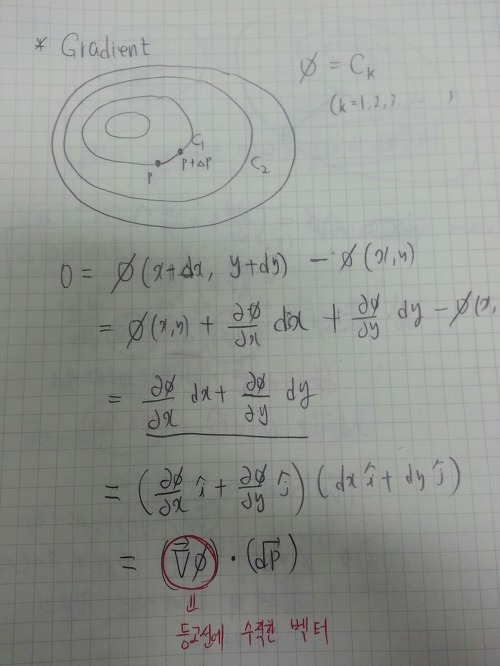 * Gradient
∅ = Cₖ
(k=1,2,3.....)
C₁
P P+ΔP
C₂
0 = ∅(x+dx, y+dy) - ∅(x,y)
= ∅(x,y) + ∂∅/∂x dx + ∂∅/∂y dy - ∅(x,
= ∂∅/∂x dx + ∂∅/∂y dy
= (∂∅/∂x î + ∂∅/∂y ĵ) (dx î + dy ĵ)
= (∇⃗∅) · (dP⃗)
등고선에 수직한 벡터